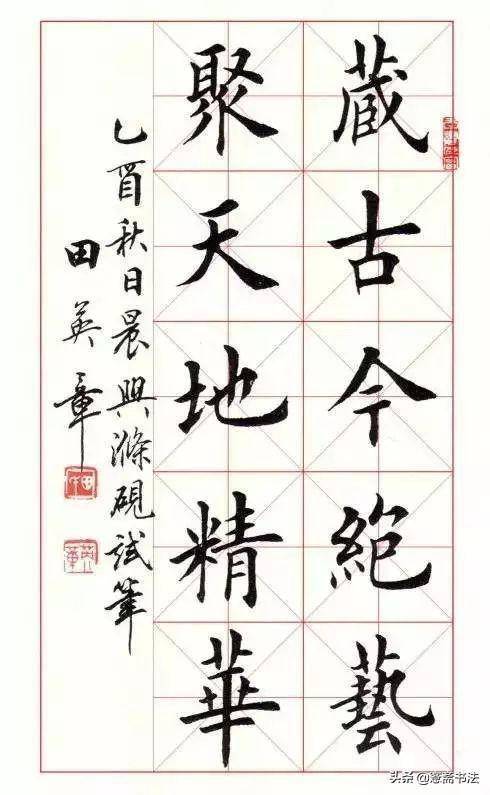 藏古今絕藝
聚天地精華
乙酉秋日晨興滌硯試筆
田英章
头条@蕙斋书法